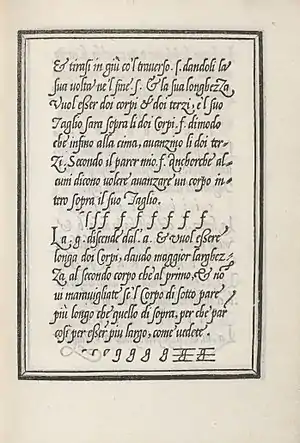 & tirasi in giù co'l traverso. ſ. dandoli la
sua volta ne'l fine. ſ. & la sua longhezza
Vuol esser doi corpi & doi terzi, è'l suo
Taglio sara sopra li doi Corpi. f. di modo
che infino alla cima, auanzino li doi ter-
zi. Secondo il parer mio. f. Anchorche al-
cuni dicono volere auanzare un corpo in-
tero sopra il suo Taglio.
ſ ſ f f f f f f
La. g. discende dal. a. & vuol essere
longa doi Corpi, dando maggior larghez-
za, al secondo corpo che al primo, & nõ
vi marauigliate se'l Corpo di sotto pare
più longo che quello di sopra, per che par
così per esser più largo, come vedete.
g g g g